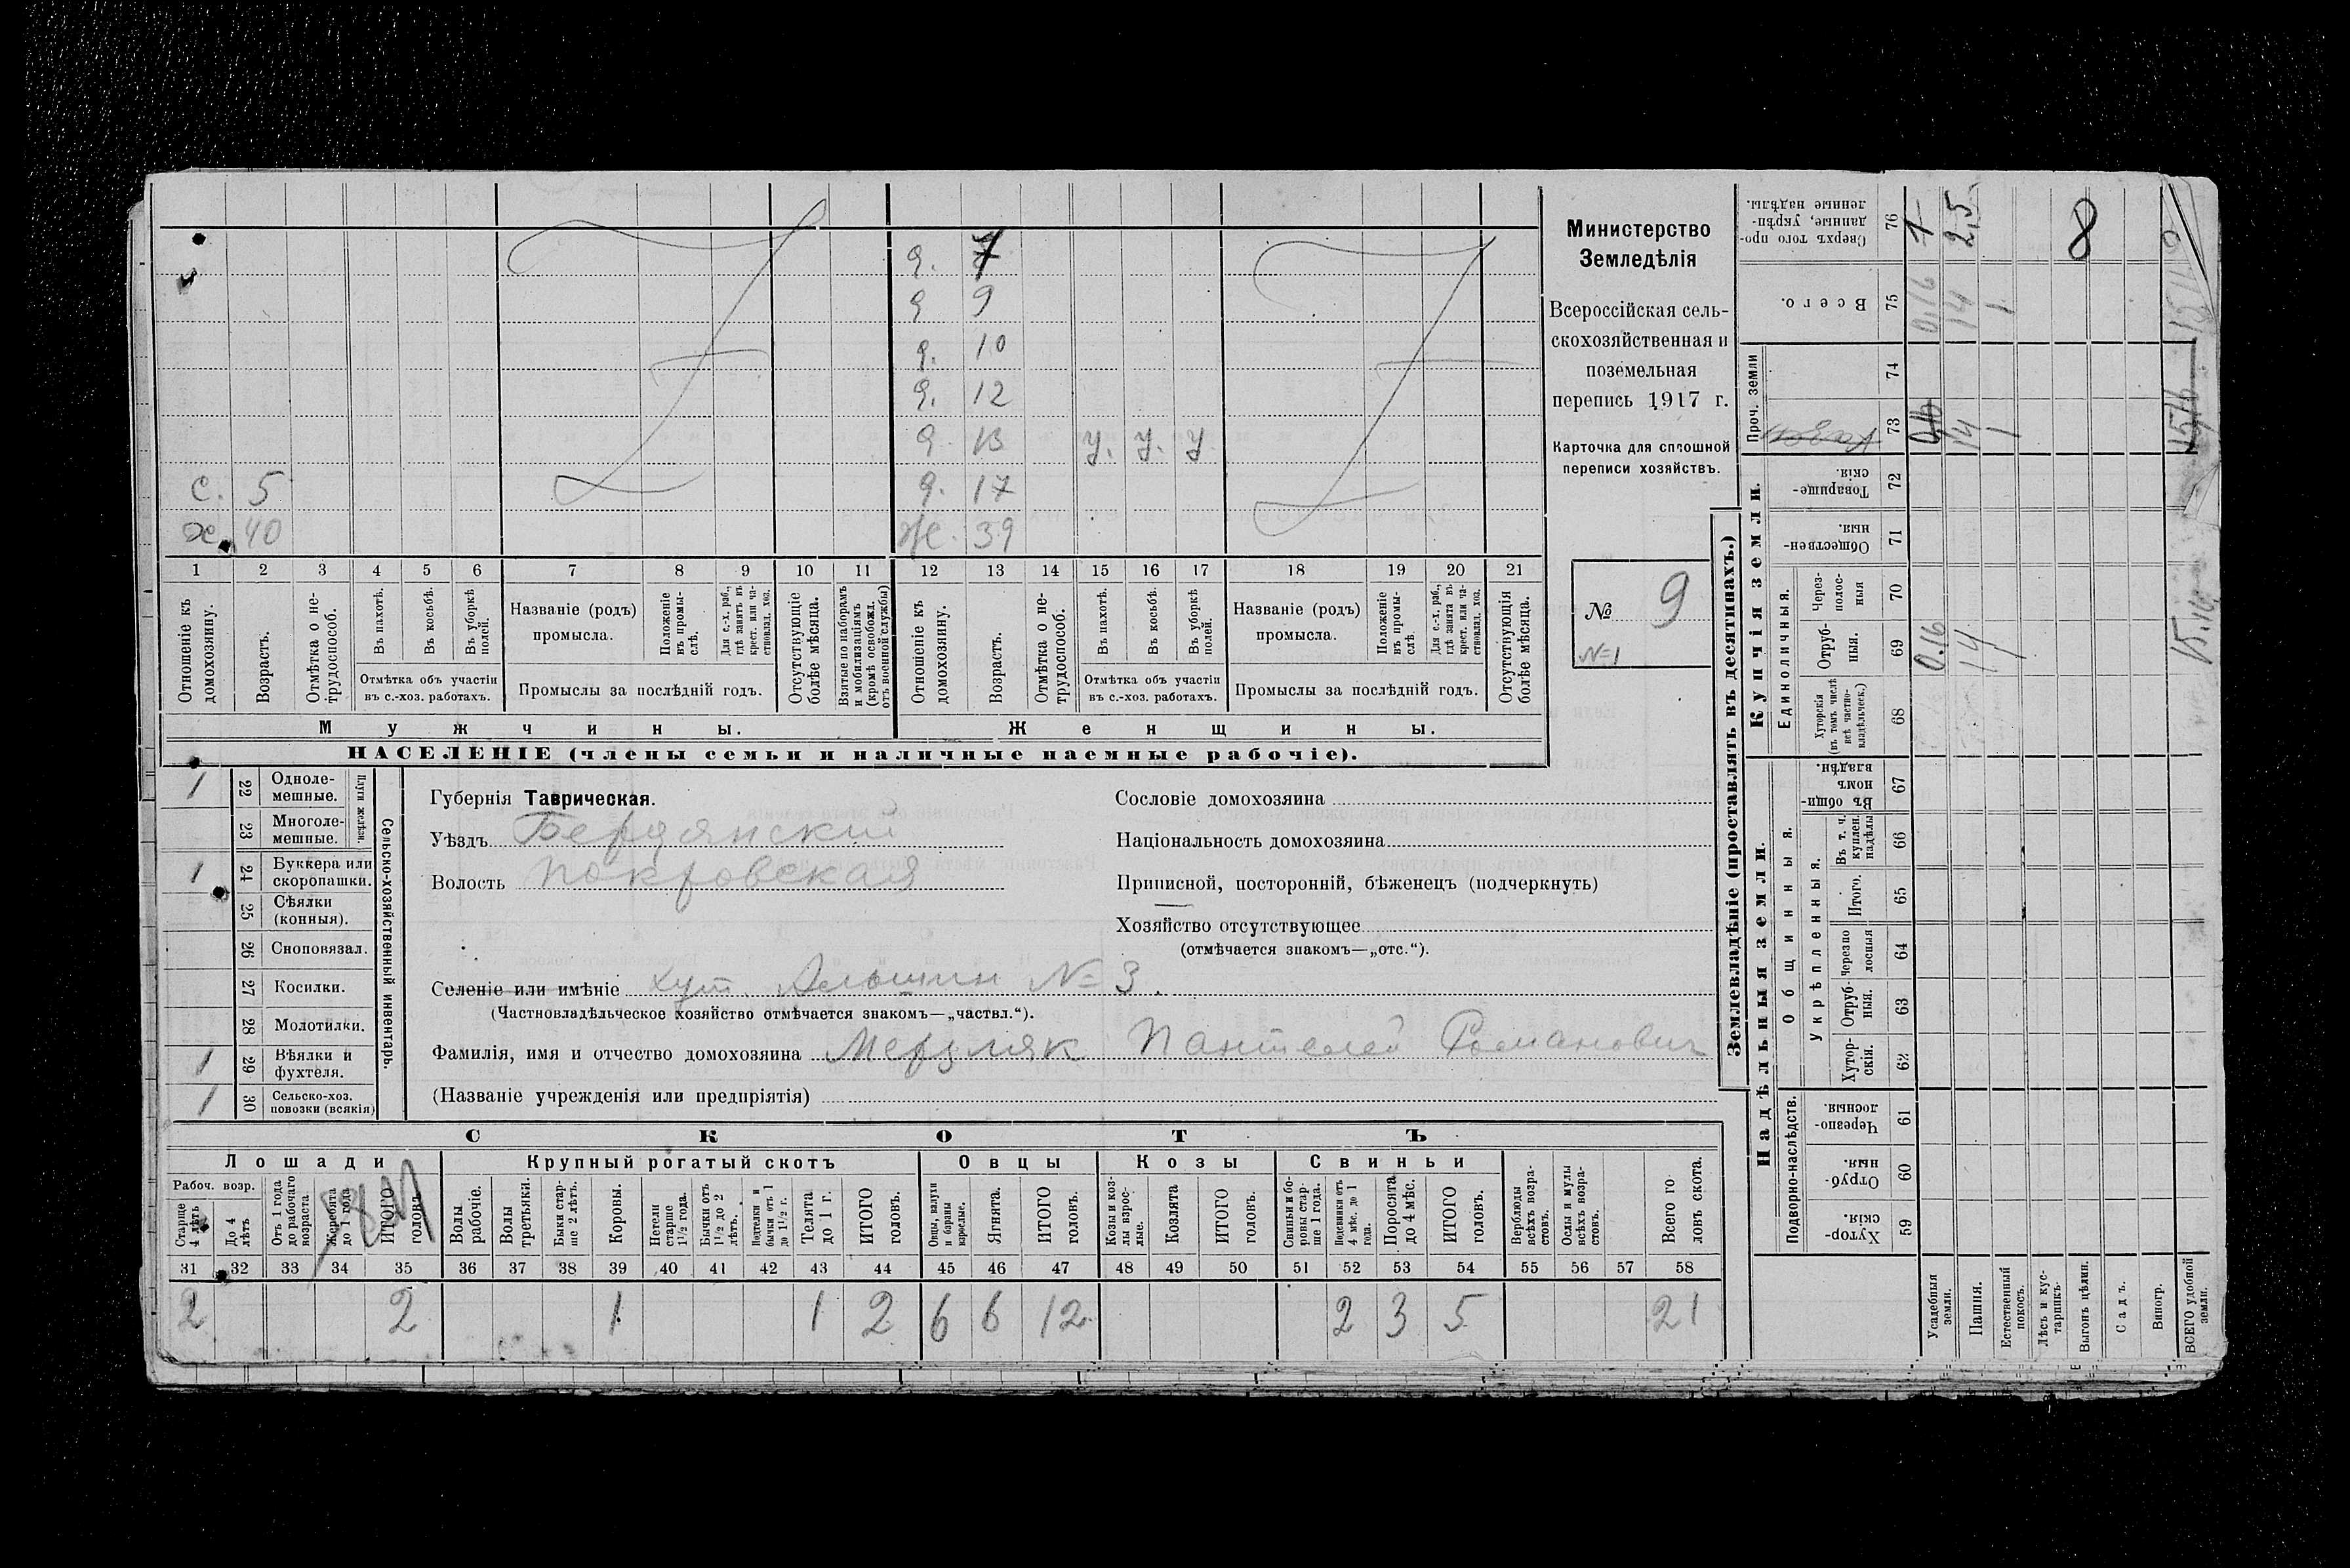 с. 5
х. 40
д. 7
д 9
д. 10
д. 12
д. 13 у. у. у
д. 17
ж. 39
1 2 3 4 5 6 7 8 9 10 11 12 13 14 15 16 17 18 19 20 21
Отношеніе къ домохозяину.
Возрастъ.
Отмѣтка о не-трудоспособ.
Въ пахотѣ.
Въ косьбѣ.
Въ уборкѣ полей.
Отмѣтка объ участіи
въ с.-хоз. работахъ.
Названіе (родъ)
промысла.
Положеніе въ промы-слѣ.
Для с.-х. раб., гдѣ занятъ въ крест. или ча-стновлад. хоз.
Промыслы за послѣдній годъ.
Отсутствующіе болѣе мѣсяца.
Взятые по наборамъ и мобилизаціямъ (кромѣ освобожд. отъ военной службы)
Отношеніе къ домохозяину.
Возрастъ.
Отмѣтка о не-трудоспособ.
Въ пахотѣ.
Въ косьбѣ.
Въ уборкѣ полей.
Отмѣтка объ участіи
въ с.-хоз. работахъ.
Названіе (родъ)
промысла.
Положеніе въ промы-слѣ.
Для с.-х. раб., гдѣ занята въ крест. или ча-стновлад. хоз.
Промыслы за послѣдній годъ.
Отсутствующія болѣе мѣсяца.
Мужчины.
Женщины.
НАСЕЛЕНІЕ (члены семьи и наличные наемные рабочіе).
Министерство
Земледѣлія
Всероссійская сель-
скохозяйственная и
поземельная
перепись 1917 г.
Карточка для сплошной
переписи хозяйствъ.
№ 9
№1
1 22 Одноле-мешные.
Плуги желѣзн.
23 Многоле-мешные.
1 24 Буккера или скоропашки.
25 Сѣялки (конныя).
26 Сноповязал.
27 Косилки.
28 Молотилки.
1 29 Вѣялки и фухтеля.
1 30 Сельско-хоз. повозки (всякія)
Сельско-хозяйственный инвентарь.
Губернія Таврическая.
Уѣздъ Бердянский
Волость Покровская
Селеніе или имѣніе хут. № 3.
(Частновладѣльческое хозяйство отмѣчается знакомъ—„частвл.“).
Фамилія, имя и отчество домохозяина Мерзляк Пантелей Романович
(Названіе учрежденія или предпріятія)
Сословіе домохозяина
Національность домохозяина
Приписной, посторонній, бѣженецъ (подчеркнуть)
Хозяйство отсутствующее
(отмѣчается знакомъ—„отс.“).
СКОТЪ
Лошади
Крупный рогатый скотъ
Овцы
Козы
Свиньи
Рабоч. возр.
Старше 4 лѣтъ
До 4 лѣтъ
Отъ 1 года до рабочаго возраста
Жеребята до 1 года
ИТОГО головъ.
Волы рабочіе.
Волы третьяки.
Быки стар-ше 2 лѣтъ.
Коровы.
Нетели старше 1½ года.
Бычки отъ 1½ до 2 лѣтъ.
Подтелки и бычки отъ 1 до 1½ г.
Телята до 1 г.
ИТОГО головъ.
Овцы, валухи и бараны взрослые.
Ягнята.
ИТОГО головъ.
Козы и коз-лы взрос-лые.
Козлята
ИТОГО головъ.
Свиньи и бо-ровы стар-ше 1 года.
Подсвинки отъ 4 мѣс. до 1 года.
Поросята до 4 мѣс.
ИТОГО головъ.
Верблюды всѣхъ возра-стовъ.
Ослы и мулы всѣхъ возра-стовъ.
Всего го-ловъ скота.
31 32 33 34 35 36 37 38 39 40 41 42 43 44 45 46 47 48 49 50 51 52 53 54 55 56 57 58
2 2 1 1 2 6 6 12 2 3 5 21
Землевладѣніе (проставлять въ десятинахъ.)
Надѣльныя земли.
Купчія земли.
Проч. земли
Подворно-наслѣдств.
Общинныя.
Укрѣпленныя.
Единоличныя.
Хутор-скія. 59
Отруб-ныя. 60
Черезпо-лосныя. 61
Хутор-скія. 62
Отруб-ныя. 63
Черезпо-лосныя 64
Итого. 65
Въ т. ч. куплен. надѣлы 66
Въ общи-номъ владѣн. 67
Хуторскія (въ томъ числѣ всѣ частно-владѣльческ.) 68
Отруб-ныя. 69
Через-полос-ныя 70
Обществен-ныя. 71
Товарище-скія. 72
73
74
Всего. 75
Сверхъ того про-данные, укрѣп-ленные надѣлы. 76
Усадебныя земли.
Пашня.
Естественный покосъ.
Лѣсъ и кус-тарникъ.
Выгонъ цѣлин.
Садъ.
Виногр.
ВСЕГО удобной земли.
0.16 14 1 15.16
14 1
0,16 14 1
1 2,5 8